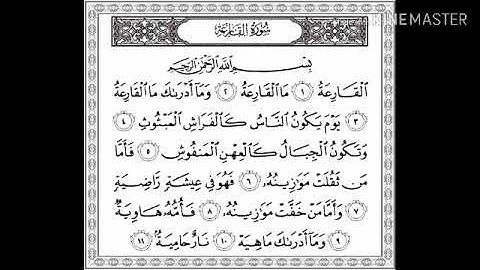 KINEMASTER
سُورَةُ القَارِعَةِ
بِسْمِ اللَّهِ الرَّحْمَٰنِ الرَّحِيمِ
الْقَارِعَةُ ١ مَا الْقَارِعَةُ ٢ وَمَا أَدْرَىٰكَ مَا الْقَارِعَةُ
٣ يَوْمَ يَكُونُ النَّاسُ كَالْفَرَاشِ الْمَبْثُوثِ ٤
وَتَكُونُ الْجِبَالُ كَالْعِهْنِ الْمَنفُوشِ ٥ فَأَمَّا
مَن ثَقُلَتْ مَوَٰزِينُهُۥ ٦ فَهُوَ فِي عِيشَةٍ رَّاضِيَةٍ
٧ وَأَمَّا مَنْ خَفَّتْ مَوَٰزِينُهُۥ ٨ فَأُمُّهُۥ هَاوِيَةٌ
٩ وَمَا أَدْرَىٰكَ مَا هِيَهْ ١٠ نَارٌ حَامِيَةٌ ١١